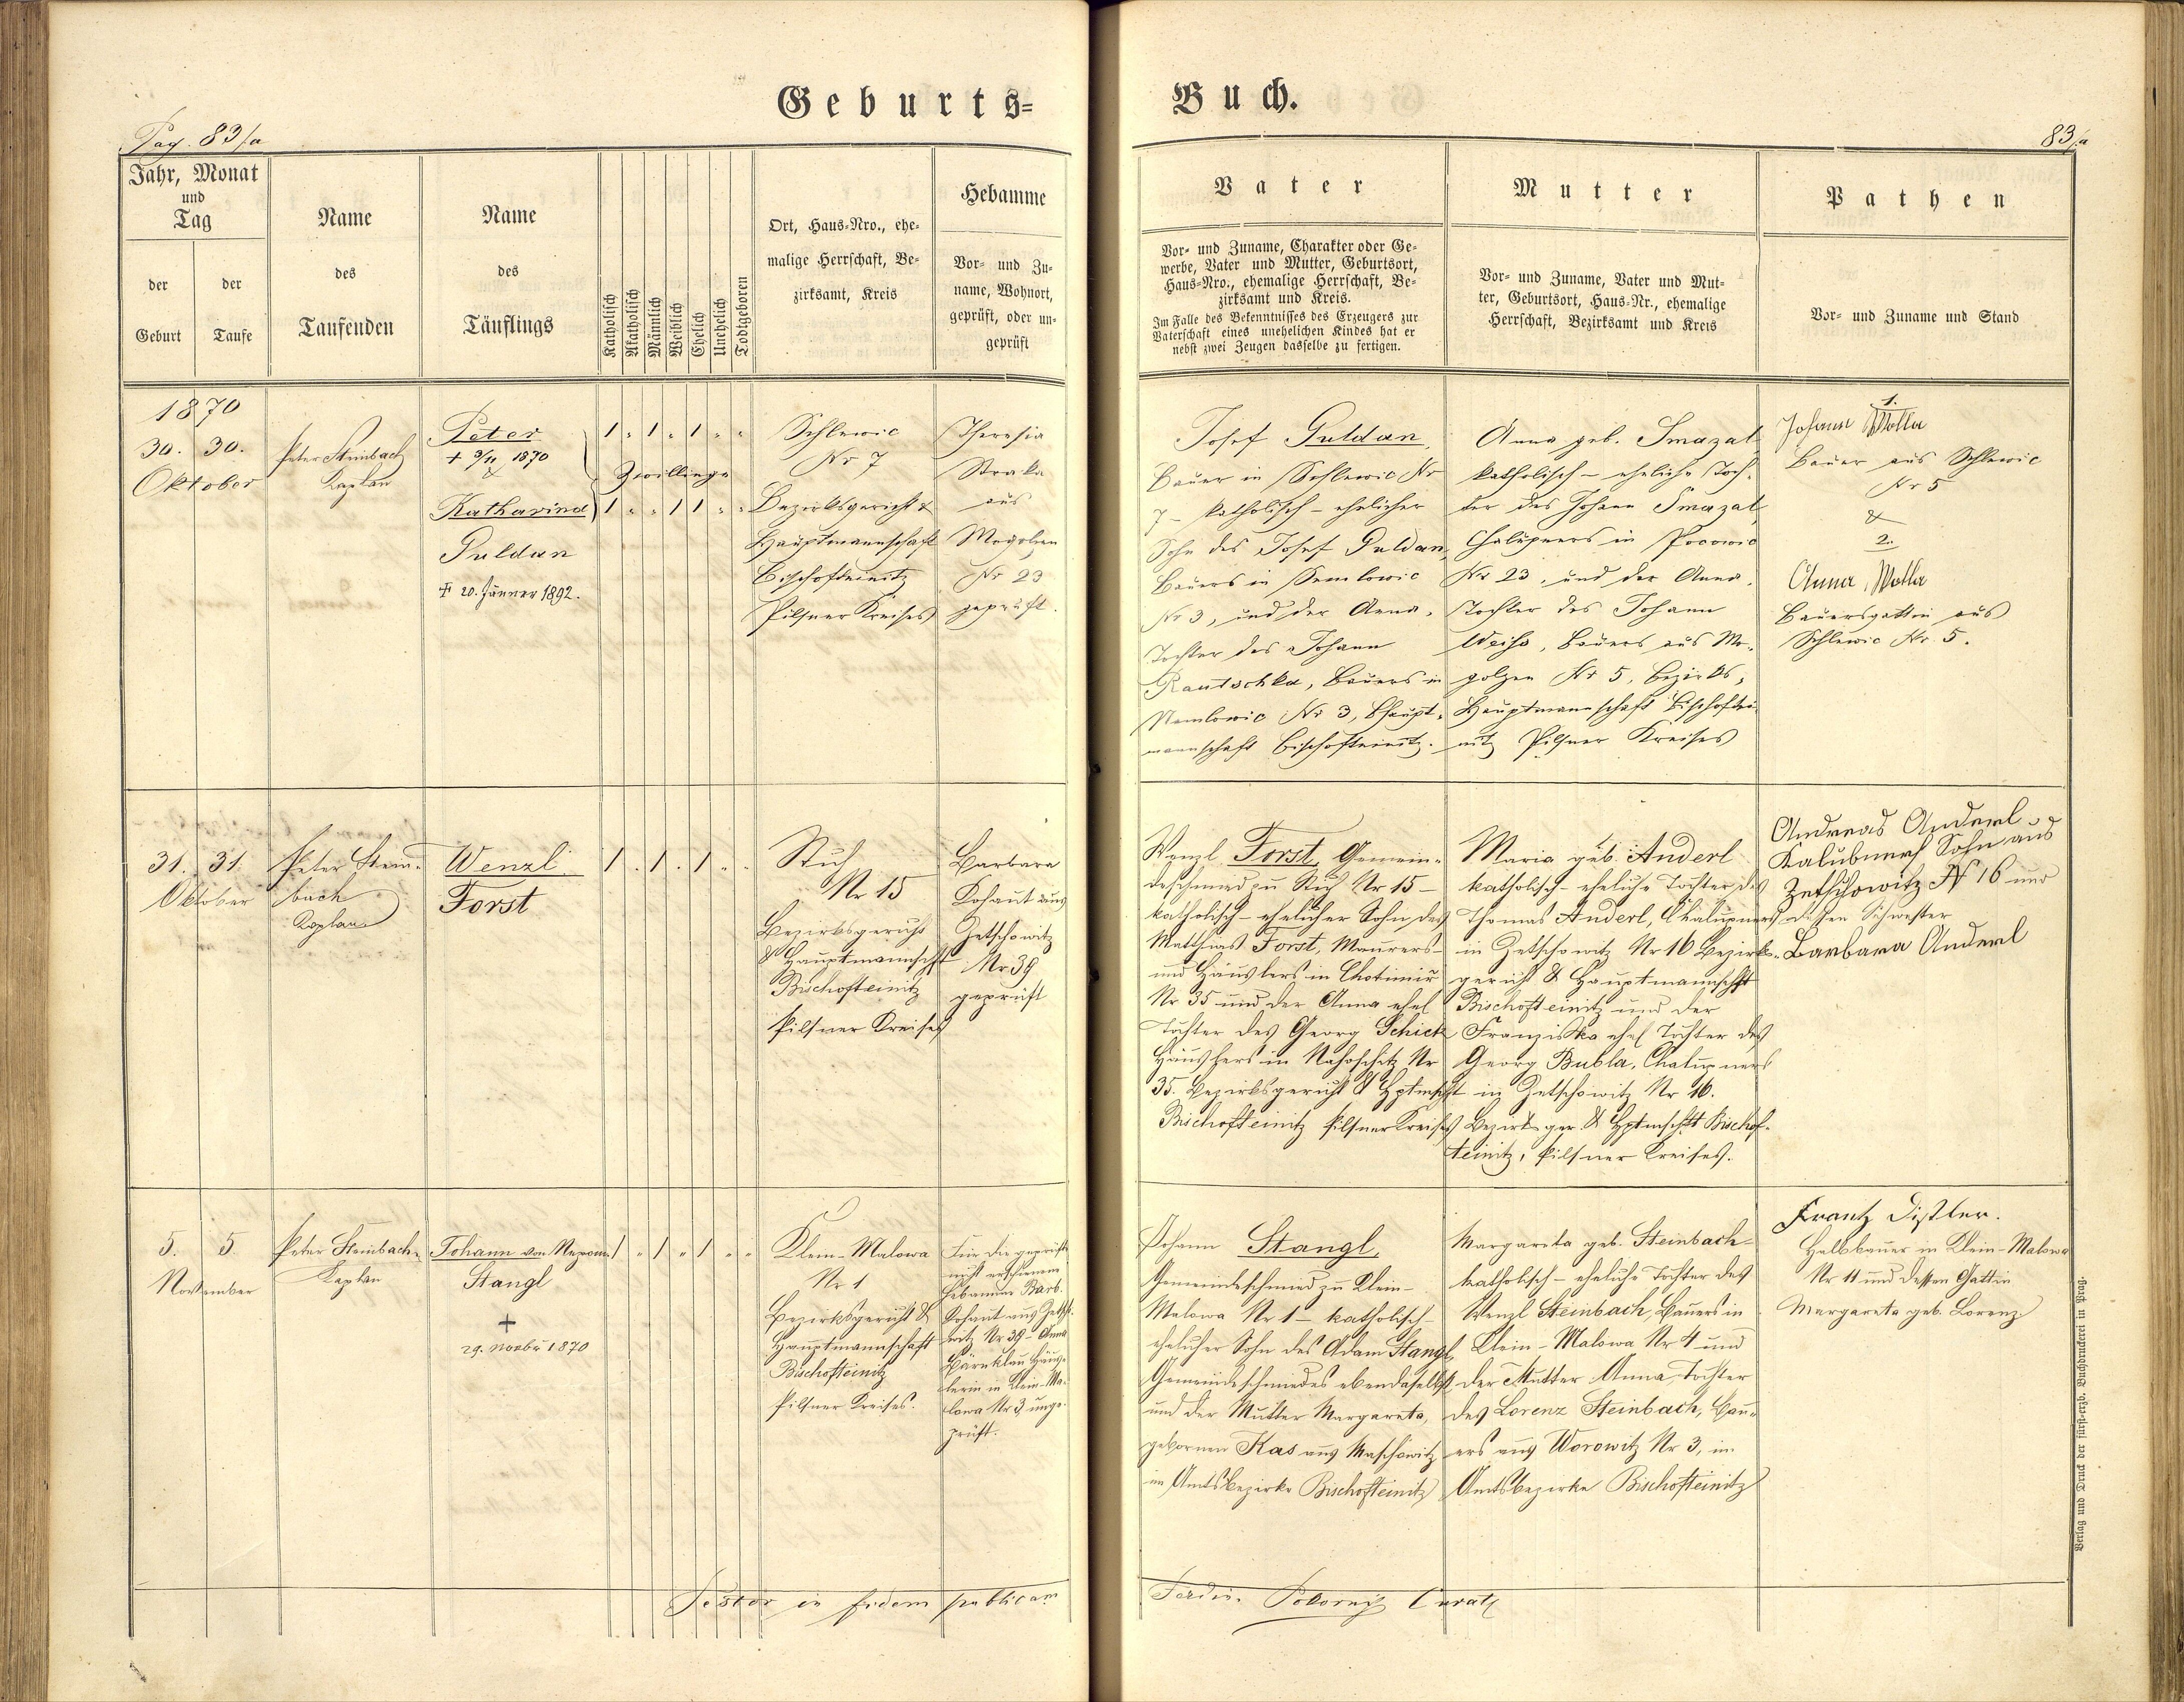 Geburts=
Buch.
Pag. 83/a
83/a
Jahr, Monat
und
Tag
der
Geburt
der
Taufe
Name
des
Taufenden
Name
des
Täuflings
Katholisch
Akatholisch
Männlich
Weiblich
Ehelich
Unehelich
Todtgeboren
Ort, Haus-Nro., ehe-
malige Herrschaft, Be-
zirksamt, Kreis
Hebamme
Vor- und Zu-
name, Wohnort,
geprüft, oder un-
geprüft
Vater
Vor- und Zuname, Charakter oder Ge-
werbe, Vater und Mutter, Geburtsort,
Haus-Nro., ehemalige Herrschaft, Be-
zirksamt und Kreis.
Im Falle des Bekenntnisses des Erzeugers zur
Vaterschaft eines unehelichen Kindes hat er
nebst zwei Zeugen dasselbe zu fertigen.
Mutter
Vor- und Zuname, Vater und Mut-
ter, Geburtsort, Haus-Nr., ehemalige
Herrschaft, Bezirksamt und Kreis
Pathen
Vor- und Zuname und Stand
1870
30. 30.
Oktober
Peter Steinbach
Kaplan
Peter
+ 3/11 1870
&
Katharina
Guldan
+ 20. Jänner 1892.
1 " 1 " 1 " "
Zwillinge
1 " " 1 1 " "
Schlewic
Nr 7
Bezirksgericht &
Hauptmannschaft
Bischofteinitz
Pilsner Kreises
Theresia
Straka
aus
Mogolzen
Nr 23
geprüft.
Josef Guldan,
Bauer in Schlewic Nr
7 – katholisch – ehelicher
Sohn des Josef Guldan,
Bauers in Semlowic
Nr 3, und der Anna,
Tochter des Johann
Rautschka, Bauers in
Namlowic Nr 3, Bhaupt-
mannschaft Bischofteinitz.
Anna geb. Smazal
katholisch – eheliche Toch-
ter des Johann Smazal,
Chalupners in Pocowic
Nr 23, und der Anna,
Tochter des Johann
Weiss, Bauers aus Mo-
golzen Nr 5, Bezirks-
Hauptmannschaft Bischoftei-
nitz Pilsner Kreises
1.
Johann Wolla
Bauer aus Schlewic
Nr 5
&
2.
Anna Wolla
Bauersgattin aus
Schlewic Nr. 5.
31. 31.
Oktober
Peter Stein-
bach
Kaplan
Wenzl
Forst
1 . 1 . 1 " "
Stich
Nr 15
Bezirksgericht
& Hauptmannschft
Bischofteinitz
Pilsner Kreises
Barbara
Kohaut aus
Zetschowitz
Nr 39
geprüft
Wenzl Forst, Gemein-
deschmied zu Stich Nr 15 –
katholisch – ehelicher Sohn des
Matthias Forst, Maurers
und Häuslers in Chotimir
Nr 35 und der Anna ehel
Tochter des Georg Schick
Häuslers in Nahoschitz Nr
35. Bezirksgericht & Hptmschft
Bischofteinitz Pilsner Kreises
Maria geb. Anderl
katholisch – eheliche Tochter des
Thomas Anderl, Chalupners
in Zetschowitz Nr 16 Bezirks-
gericht & Hauptmannschft
Bischofteinitz und der
Franziska ehel Tochter des
Georg Bubla, Chalupners
in Zetschowitz Nr 16.
Bezirksger. & Hptmschft Bischof-
teinitz, Pilsner Kreises.
Andreas Anderl
Kalubners Sohn aus
Zetschowitz N 16 und
dessen Schwester
Barbara Anderl
5. 5
November
Peter Steinbach
Kaplan
Johann von Nepom.
Stangl
+
29. Novbr 1870
1 " 1 " 1 " "
Klein-Malowa
Nr 1
Bezirksgericht &
Hauptmannschaft
Bischofteinitz
Pilsner Kreises.
Für die geprüfte
nicht erschienene
Hebamme Barb.
Kohaut aus Zetscho-
witz Nr 39 – Anna
Bärnklau Häus-
lerin in Klein-Ma-
lowa Nr 3, unge-
prüft.
Johann Stangl,
Gemeindeschmied zu Klein-
Malowa Nr 1 – katholisch –
ehelicher Sohn des Adam Stangl
Gemeindeschmiedes ebendaselbst
und der Mutter Margareta,
gebornen Kas aus Maschowitz
im Amtsbezirke Bischofteinitz
Margareta geb. Steinbach
katholisch – eheliche Tochter des
Wenzl Steinbach, Bauers in
Klein-Malowa Nr 4 und
der Mutter Anna, Tochter
des Lorenz Steinbach, Bau-
ers aus Worowitz Nr 3, im
Amtsbezirke Bischofteinitz
Frantz Distler.
Halbbauer in Klein-Malowa
Nr 11 und dessen Gattin
Margareta geb. Lorenz
Testor in fidem publicam
Ferdin. Pokorny Curat
Verlag und Druck der fürst-erzb. Buchdruckerei in Prag.